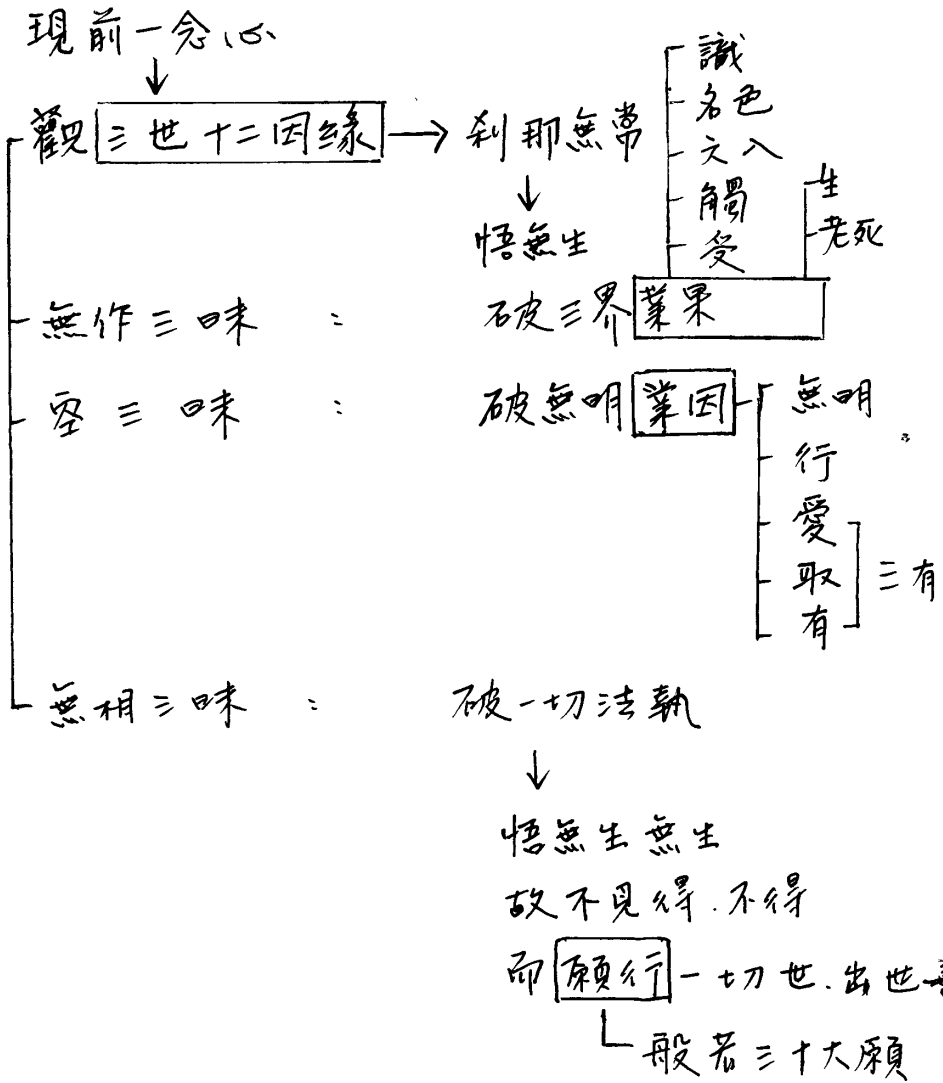 現前一念心
觀三世十二因緣 → 刹那無常
識
名色
六入
觸
受
生
老死
悟無生
無作三昧 : 破三界業果
空三昧 : 破無明業因
無明
行
愛
取
有
三有
無相三昧 : 破一切法執
悟無生無生
故不見得.不得
而願行一切世.出世
般若三十大願